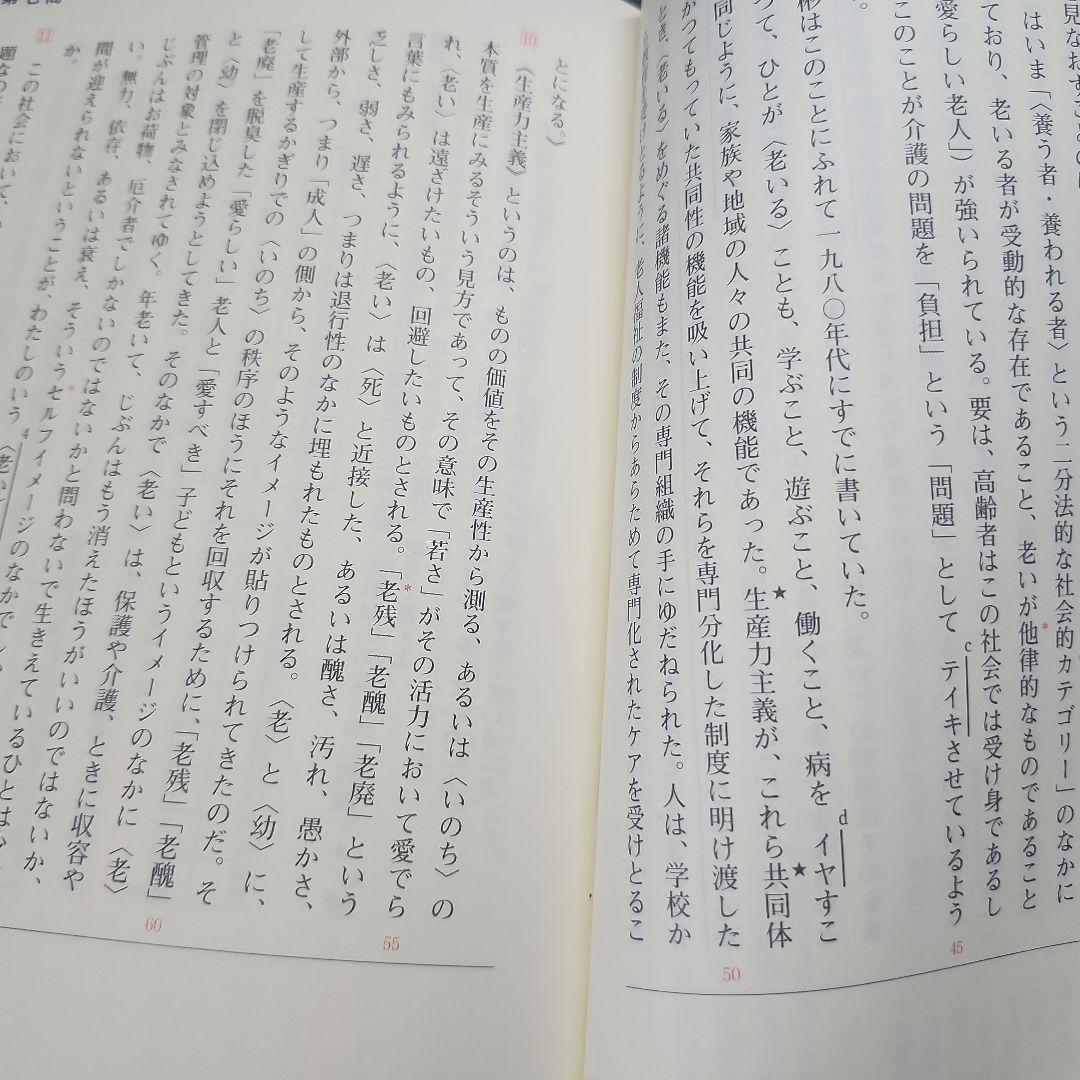 見なおすことの
はいま「〈養う者・養われる者〉という二分法的な社会的カテゴリー」のなかに
ており、老いる者が受動的な存在であること、老いが他律的なものであること
愛らしい老人」）が強いられている。要は、高齢者はこの社会では受け身であるし
このことが介護の問題を「負担」という「問題」としてテイキさせているよう
c
45
。
彬はこのことにふれて一九八〇年代にすでに書いていた。
って、ひとが〈老いる〉ことも、学ぶこと、遊ぶこと、働くこと、病をイヤすこ
d
同じように、家族や地域の人々の共同の機能であった。生産力主義が、これら共同体
★
★
かつてもっていた共同性の機能を吸い上げて、それらを専門分化した制度に明け渡した
50
とき、〈老いる〉をめぐる諸機能もまた、その専門組織の手にゆだねられた。人は、学校か
ように、老人福祉の制度からあらためて専門化されたケアを受けとるこ
とになる。）
10
〈生産力主義〉というのは、ものの価値をその生産性から測る、あるいは〈いのち〉の
本質を生産にみるそういう見方であって、その意味で「若さ」がその活力において愛でら
れ、〈老い〉は遠ざけたいもの、回避したいものとされる。「老残」「老醜」「老廃」という
55
言葉にもみられるように、〈老い〉は〈死〉と近接した、あるいは醜さ、汚れ、愚かさ、
乏しさ、弱さ、遅さ、つまりは退行性のなかに埋もれたものとされる。〈老〉と〈幼〉に、
外部から、つまり「成人」の側から、そのようなイメージが貼りつけられてきたのだ。そ
して生産するかぎりでの〈いのち〉の秩序のほうにそれを回収するために、「老残」「老醜」
「老廃」を脱臭した「愛らしい」老人と「愛すべき」子どもというイメージのなかに〈老〉
60
と〈幼〉を閉じ込めようとしてきた。そのなかで〈老い〉は、保護や介護、ときに収容や
管理の対象とみなされてゆく。年老いて、じぶんはもう消えたほうがいいのではないか、
じぶんはお荷物、厄介者でしかないのではないかと問わないで生きえているひとは
い。無力、依存、あるいは衰え、そういうセルフイメージのなかでしか
間が迎えられないということが、わたしのいう〈老い
4
か。
11
この社会において、